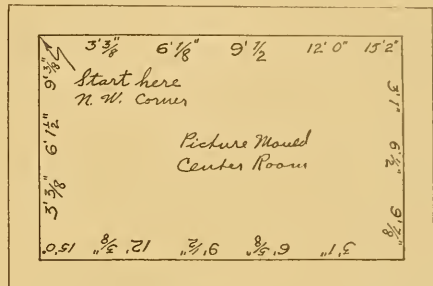 3' 3/8" 6' 1/8" 9' 1/2 12' 0" 15' 2"
Start here
N. W. Corner
Picture Mould
Center Room
3' 1" 6' 1/2" 9' 7/8"
3' 1" 6' 5/8" 9' 1/2" 12' 3/8" 15' 0"
3' 3/8" 6' 1/2" 9' 3/8"